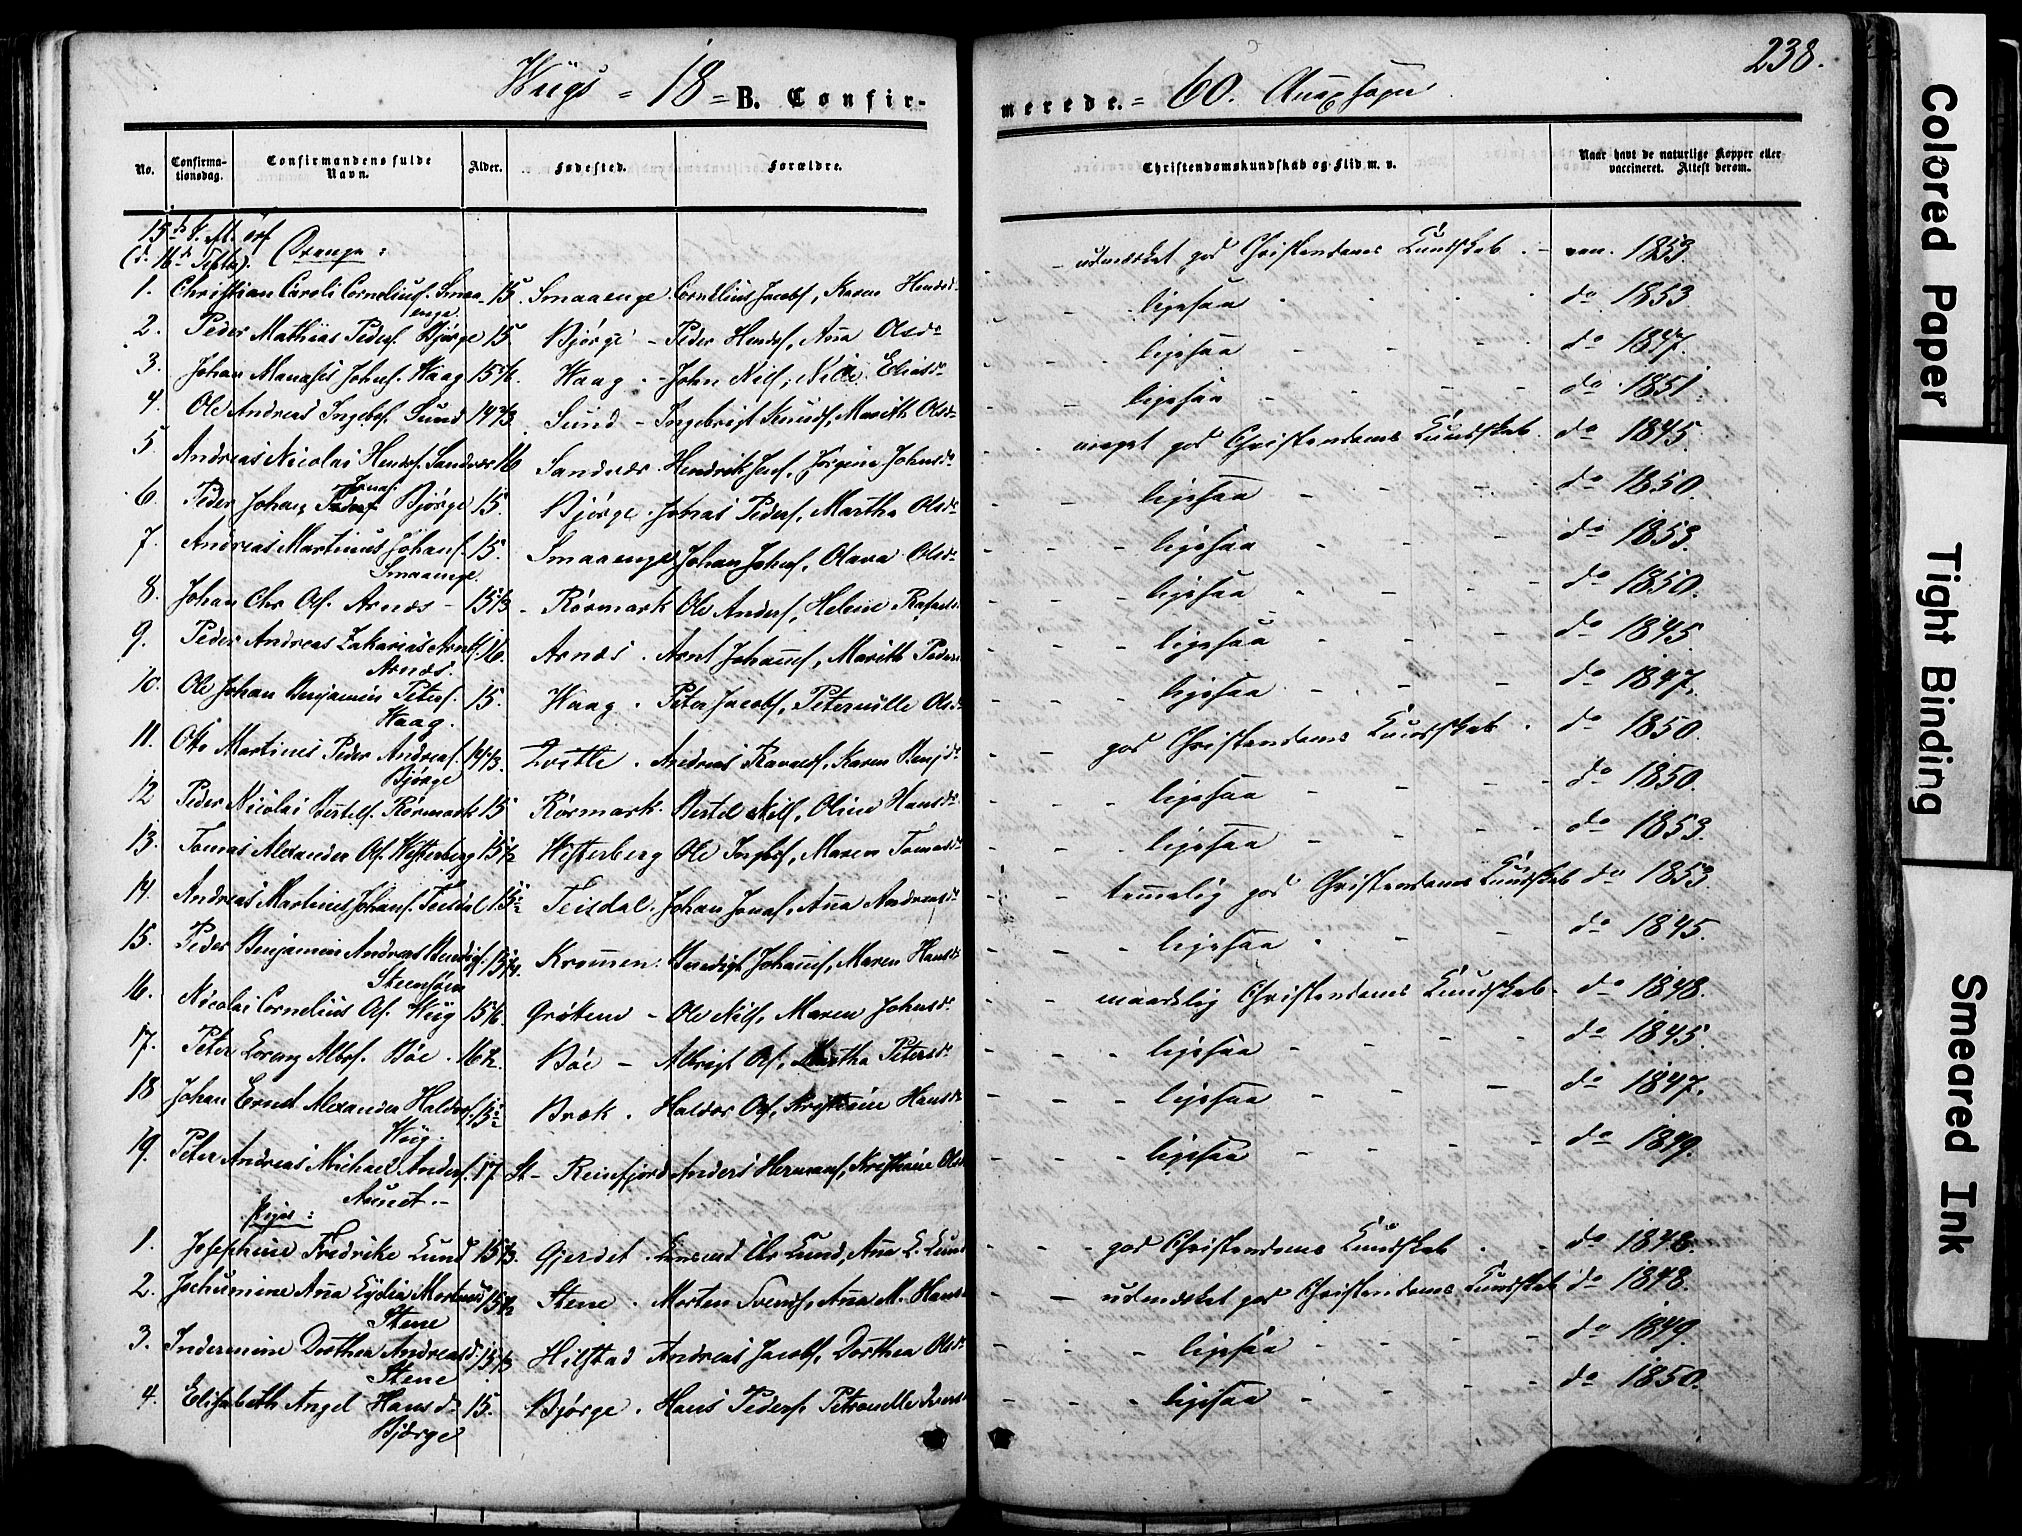 238.
Wiigs - 18 - B. Confir-
merede. - 60. Anexsogn
No. Confirma-tionsdag. Confirmandens fulde Navn. Alder. Fødested. Forældre. Christendomskundskab og Flid m. v. Naar havt de naturlige Kopper eller vaccineret. Attest derom.
(d. 16d Septbr). Drenge:
1. Christian Caroli Cornelius. Smaaenge 15. Smaaenge. Cornelius Jacobs, Karen Hendsd. - udmærket god Christendoms Kundskab. - vac. 1853.
2. Peder Mathias Peders. Bjørge 15 Bjørge - Peder Hends, Ana Olsdr ligesaa do 1853
3. Johan Manasses Johns. Waag 15 Waag. - John Nils, Eliasdr ligesaa do 1847.
4. Ole Andreas Ingebs. Sund 14 2/3. Sund - Ingebrigt Knuds, Marith Olsdr ligesaa do 1851.
5 Andreas Nicolai Hends. Sandvær 16 Sandvær - Hendrik Jens, Jørgine Johnsdr meget god Christendoms Kundskab. do 1845.
6. Peder Johan Jonas. Bjørge 15. Bjørge. Jonas Peders, Martha Olsdr ligesaa do 1850.
7. Andreas Martinus Johans. Smaaenge. 15. Smaaenge Johan Johns, Olava Olsdr ligesaa do 1853.
8. Johan Chr Ols. Arnæs - 15 - Rørmark Ole Anders, Helene ligesaa do 1850.
9. Peder Andreas Zakarias Arnts. Arnæs. 16. Arnæs. Arnt Johans, Marith Peders ligesaa do 1845.
10. Ole Johan Benjamin Peters. Waag. 15. Waag. Peter Jacobs, Peternille Olsd ligesaa do 1847.
11. Otto Martinus Peder Andreas. Bjørge 14 2/3. Andreas Karen Benjdr god Christendoms Kundskab. do 1850.
12 Peder Nicolai Bertels. Rørmark 15 Rørmark. Bertel Nils, Oline Hansdr ligesaa do 1850.
13. Tomas Alexander Ols. Westerberg 15 1/2 Westerberg Ole Ingebs, Maren Tomasdr ligesaa do 1853.
14. Andreas Martinus Johans. Teisdal 15 1/2 Teisdal. Johan Jonas. Ana Andreasdr temelig god Christendoms Kundskab do 1853
15. Peder Benjamin Andreas Bendigs. 15 Kromen. Bendigt Johans, Maren Hansdr ligesaa do 1845.
16. Nicolai Cornelius Ols. Wiig 15 Grøtem - Ole Nils, Maren Johnsdr maadelig Christendoms Kundskab. do 1848.
17. Peter Lorenz Albs. Bøe. 16 1/2. Bøe - Albrigt Ols, Martha Petersdr ligesaa do 1845.
18 Johan Ernst Alexander Haldors. Wiig. 15 1/2 Bræk. Haldor Ols, Kristine Hansdr ligesaa do 1847.
19. Peter Andreas Michael Anders. Aunet. - 17. St - Reinsfjord Anders Hermans, Kristine Ols ligesaa do 1849.
Piger:
1. Josephine Fredrike Lund 15 Gjerdet. Chr Lund, Ana L. Lund god Christendoms Kundskab do 1848.
2. Jochumine Ana Lydia Mortensd Stene 15 1/2 Stene. Morten Svends, Ana M. Hans udmærket god Christendoms Kundskab do 1848.
3. Indermine Dorthea Andreasd. Stene 15 Hilstad Andreas Jacobs, Dorthea Olsdr ligesaa do 1849.
4. Elisabeth Angel Hansd. Bjørge 15. Bjørge. Hans Peders. Petronelle ligesaa do 1850.
Colored Paper
Tight Binding
Smeared Ink